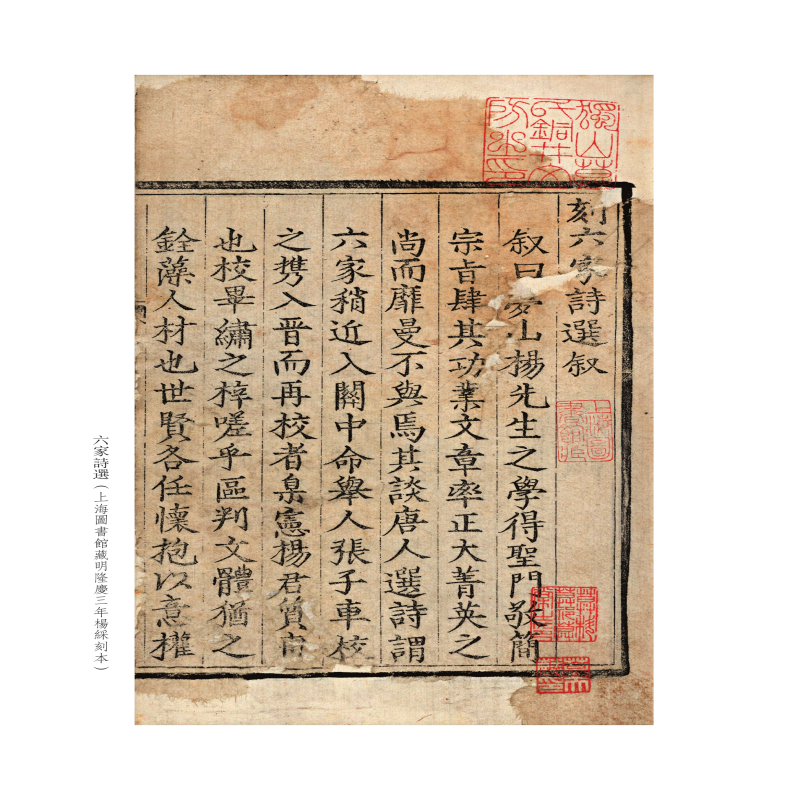 刻六家詩選叙
叙曰夢山楊先生之學得聖門敬簡
宗旨肆其功業文章率正大菁英之
尚而靡曼不與焉其談唐人選詩謂
六家稍近入關中命舉人張子車校
之携入晋而再校者臬憲楊君質甫
也校畢繡之梓嗟乎區判文體猶之
銓藻人材也世賢各任懷抱以意權
上海圖書館藏
六家詩選（上海圖書館藏明隆慶三年楊綵刻本）